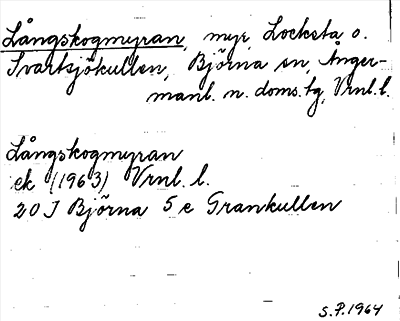 Långskogmyran, myr, Locksta o.
Svartsjökullen, Björna sn, Ånger-
manl. n. doms.tg, Vrnl.l.
Långskogmyran
ek (1963) Vrnl.l.
20 J Björna 5 e Grankullen
S.P.1964